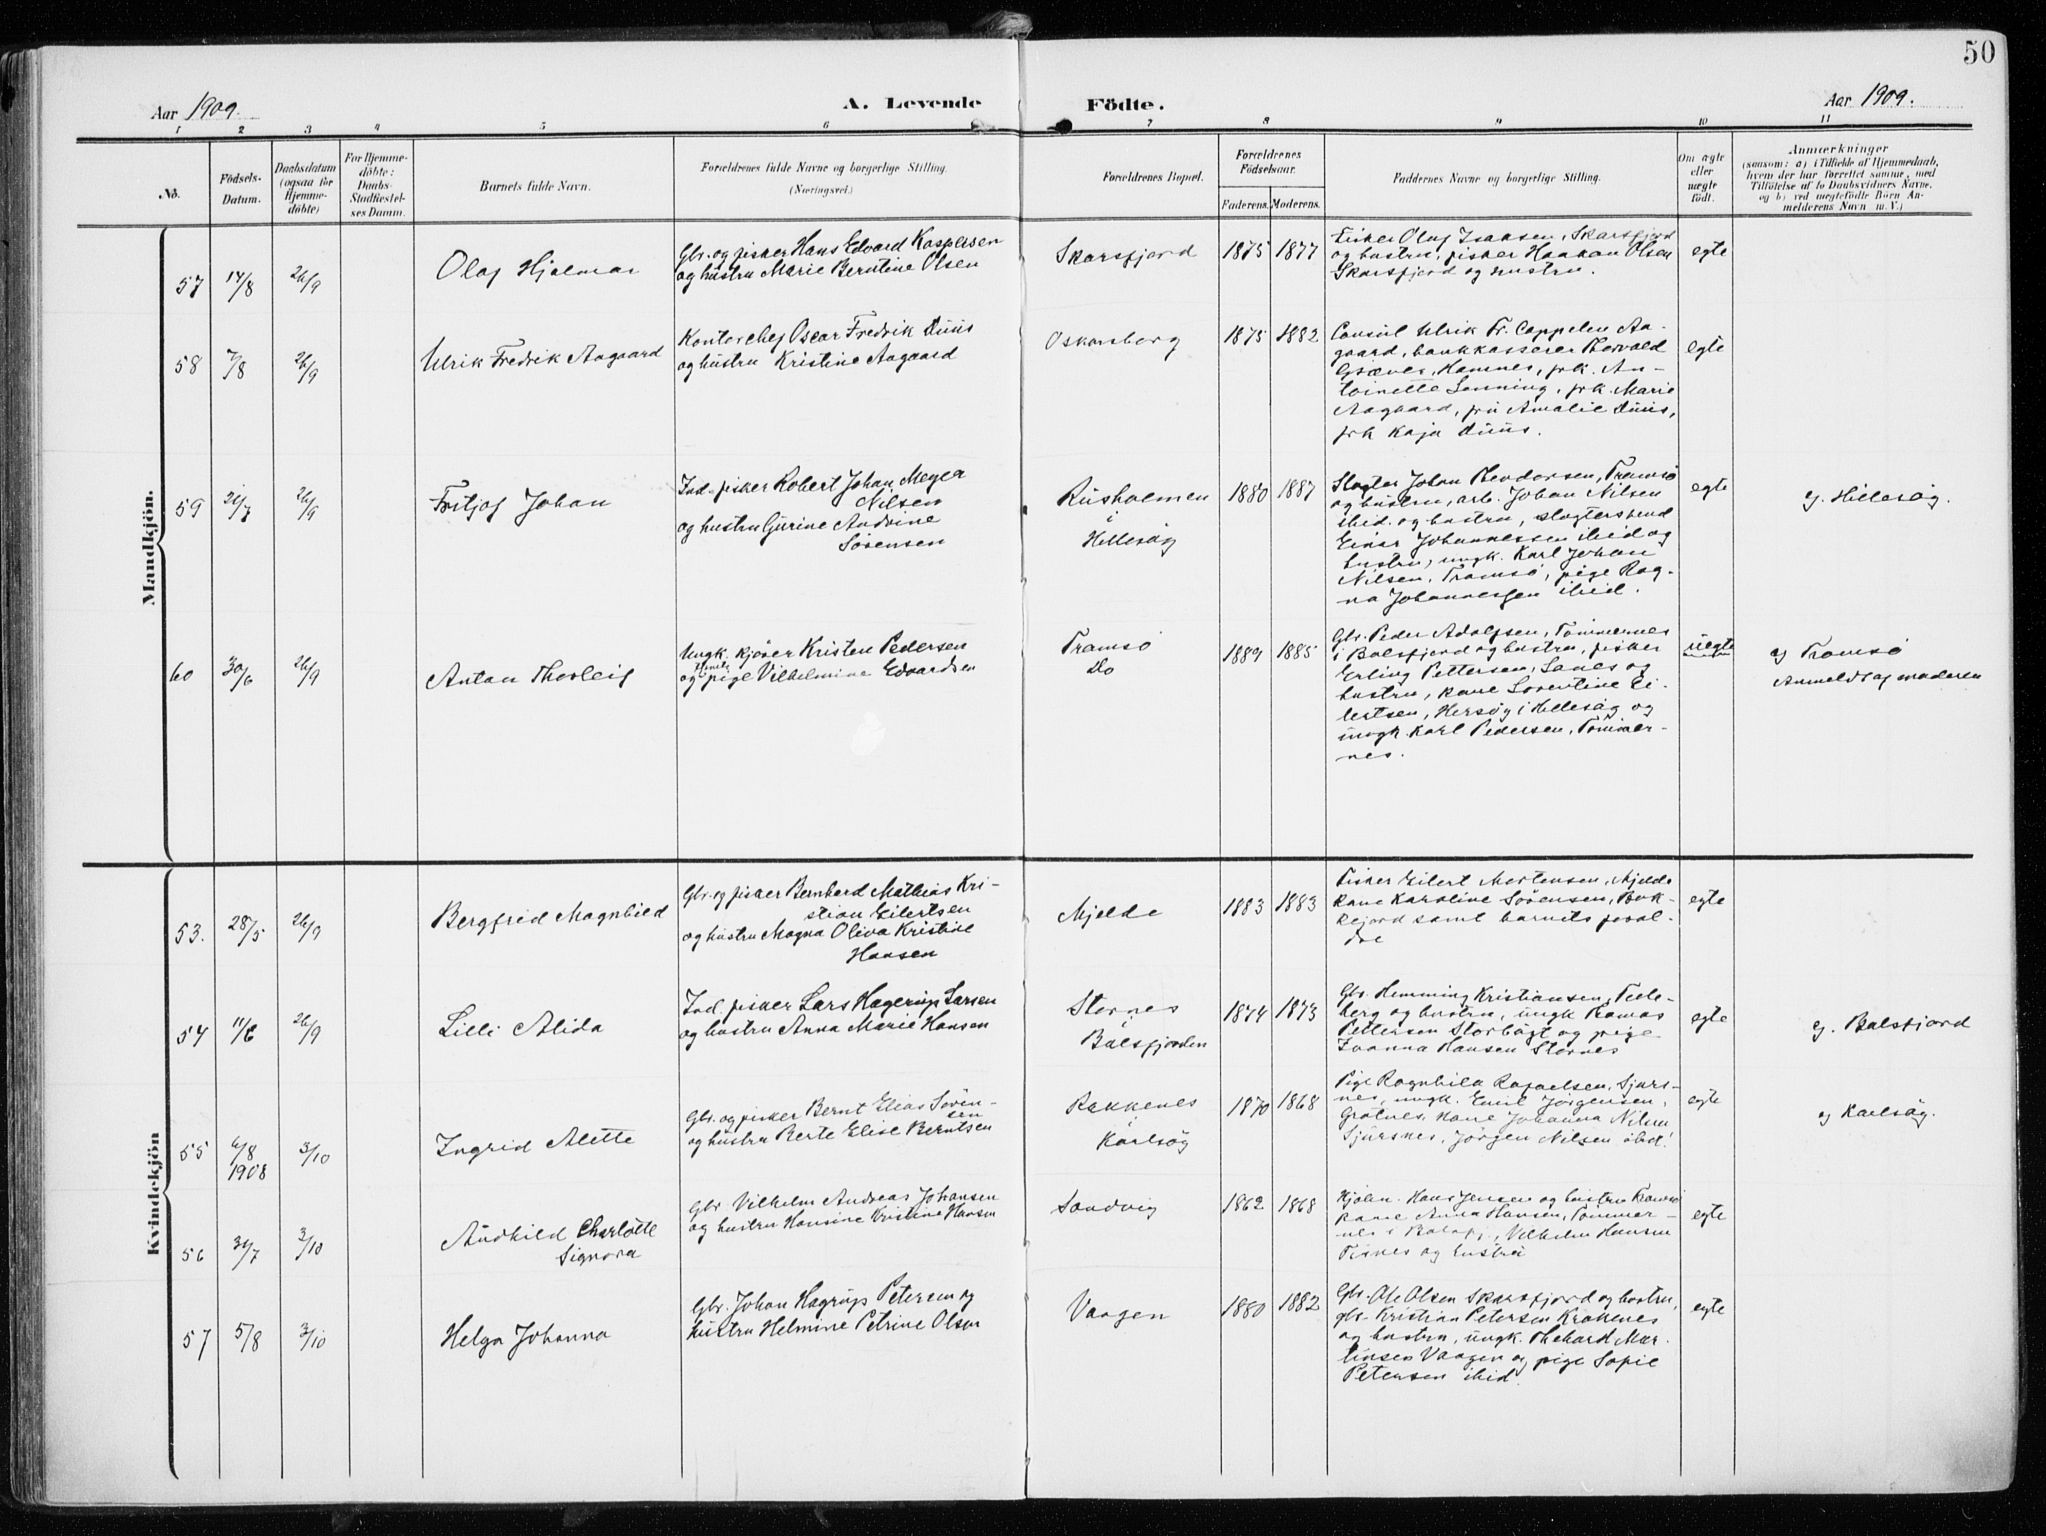 50
Aar 1909.
A. Levende Födte.
Aar 1909.
1 2 3 4 5 6 7 8 9 10 11
No.
Födsels-
Datum.
Daabsdatum
(ogsaa för
Hjemme-
döbte)
For Hjemme-
döbte:
Daabs-
Stadfæstel-
ses Datum.
Barnets fulde Navn.
Forældrenes fulde Navne og borgerlige Stilling.
(Næringsvei.)
Forældrenes Bopæl.
Forældrenes
Födselsaar.
Faderens. Moderens.
Faddernes Navne og borgerlige Stilling.
Om ægte
eller
uægte
födt.
Anmærkninger
(saasom: a) i Tilfælde af Hjemmedaab,
hvem der har forrettet samme, med
Tilföielse af to Daabsvidners Navne,
og b) ved uægtefödte Börn An-
melderens Navn m. V.)
Mandkjön.
57
17/8
26/9
Olaf Hjalmar
Gbr. og fisker Hans Edvard Kaspersen
og hustru Marie Berntine Olsen
Skarsfjord
1875
1877
Fisker Olaf Isaksen, Skarsfjord
og hustru, fisker Haakon Olsen
Skarsfjord og hustru.
egte
58
7/8
26/9
Ulrik Fredrik Aagaard
Kontorchef Oscar Fredrik Duus
og hustru Kristine Aagaard
Oskarsborg
1875
1882
Consul Ulrik Fr. Cappelen Aa-
gaard, bankkasserer Thorvald
Græver, Hamnes, frk. An-
toinette Lønning, frk. Marie
Aagaard, fru Amalie Duus,
frk Kaja Duus.
egte
59
21/7
26/9
Fritjof Johan
Ind. fisker Robert Johan Meyer
Nilsen
og hustru Gurine Andrine
Sørensen
Risholmen
i
Hillesøy
1880
1887
Slagter Johan Theodorsen, Tromsø
og hustru, arb. Johan Nilsen
ibid. og hustru, slagtersvend
Einar Johannessen ibid og
hustru, ungk. Karl Johan
Nilsen, Tromsø, pige Rag-
na Johannessen ibid.
egte
cf. Hillesøy.
60
30/6
26/9
Anton Thorleif
Ungk. kjører Kristen Pedersen
og pige Vilhelmine Edvardsen
Tromsø
Do
1889
1885
Gbr. Peder Adolfsen, Tømmernes
i Balsfjord og hustru, fisker
Erling Pettersen, Sanes og
hustru, kone Sorentine Ei-
lertsen, Hersøy i Hillesøy og
ungk. Karl Pedersen, Tømmer-
nes.
uegte
cf Tromsø
Anmeldt af moderen
Kvindekjön
53.
28/5
26/9
Bergfrid Magnhild
Gbr. og fisker Bernhard Mathias Kri-
stian Eilertsen
og hustru Magna Oliva Kristine
Hansen
Mjelde
1883
1883
Fisker Eilert Mortensen, Mjelde
kone Karoline Sørensen, Buk-
kefjord samt barnets foræl-
dre
egte
54
11/6
26/9
Lilli Alida
Ind. fisker Lars Hagerup Larsen
og hustru Anna Marie Hansen
Stornes
i
Balsfjorden
1874
1873
Gbr. Hemming Kristiansen, Tele-
berg og hustru, ungk Tomas
Pettersen Storbugt og pige
Ivanna Hansen Stornes
egte
cf. Balsfjord
55
6/8
1908
3/10
Ingrid Alette
Gbr. og fisker Bernt Elias Søren-
sen
og hustru Berte Elise Berntsen
Rekkenes
i
Karlsøy
1870
1868
Pige Ragnhild Rafaelsen, Sjurs-
nes, ungk. Emil Jørgensen,
Grøtnes, kone Johanna Nilsen
Sjursnes, Jørgen Nilsen ibid.
egte
cf Karlsøy.
56
31/7
3/10
Audhild Charlotte
Signora
Gbr. Vilhelm Andreas Johansen
og hustru Hansine Kristine Hansen
Sandvig
1862
1868
Kjølm. Hans Jensen og hustru Tromsø
kone Anna Hansen, Tømmer-
nes i Balsfj., Vilhelm Hansen
Tisnes og hustru
egte
57
5/8
3/10
Helga Johanna
Gbr. Johan Hagrup Petersen og
hustru Helmine Petrine Olsen
Vaagen
1880
1882
Gbr. Ole Olsen Skarsfjord og hustru,
gbr. Kristian Petersen Krakenes
og hustru, ungk. Thehard Mar-
tinsen Vaagen og pige Sofie
Petersen ibid.
egte